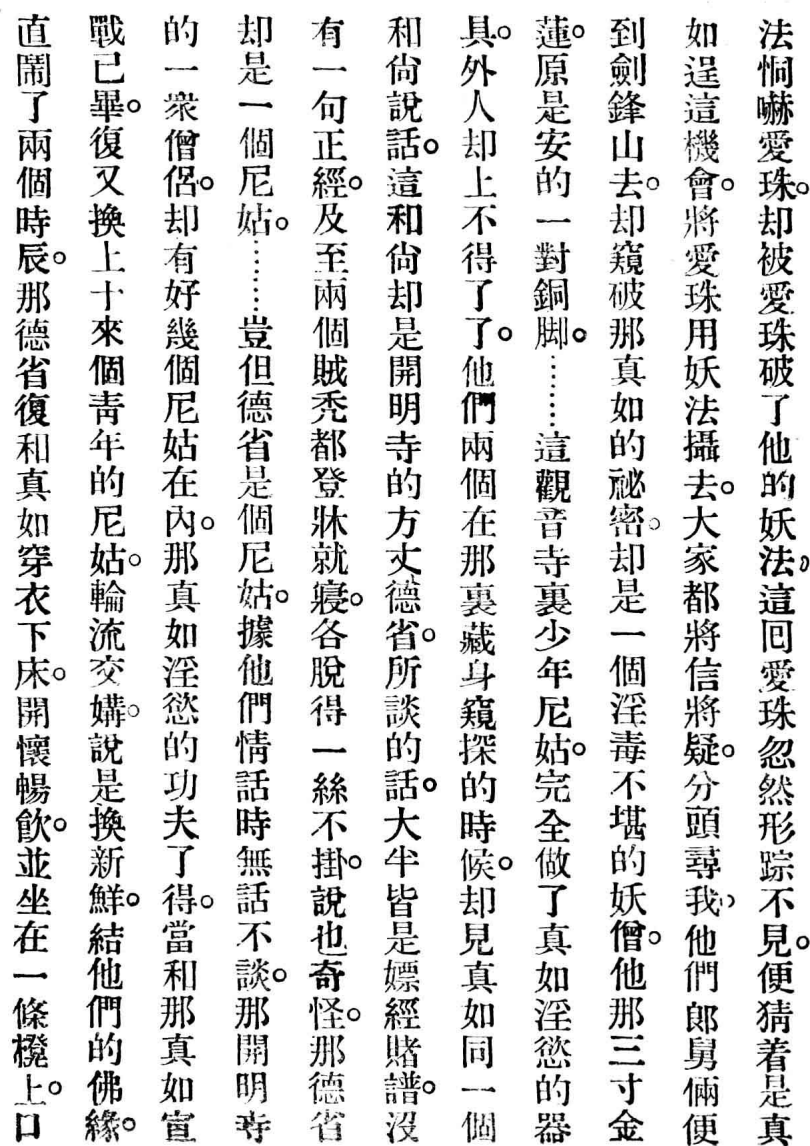 法恫嚇愛珠。却被愛珠破了他的妖法。這回愛珠忽然形踪不見。便猜着是真
如逞這機會。將愛珠用妖法攝去。大家都將信將疑。分頭尋我。他們郎舅倆便
到劍鋒山去。却窺破那真如的祕密。却是一個淫毒不堪的妖僧。他那三寸金
蓮。原是安的一對銅脚。……這觀音寺裏少年尼姑。完全做了真如淫慾的器
具。外人却上不得了了。他們兩個在那裏藏身窺探的時候。却見真如同一個
和尙說話。這和尙却是開明寺的方丈德省。所談的話。大半皆是嫖經賭譜。沒
有一句正經。及至兩個賊禿都登牀就寢。各脫得一絲不掛。說也奇怪。那德省
却是一個尼姑。……豈但德省是個尼姑。據他們情話時無話不談。那開明寺
的一衆僧侶。却有好幾個尼姑在內。那真如淫慾的功夫了得。當和那真如宣
戰已畢。復又換上十來個靑年的尼姑。輪流交媾。說是換新鮮。結他們的佛緣。
直鬧了兩個時辰。那德省復和真如穿衣下床。開懷暢飮。並坐在一條櫈上。口